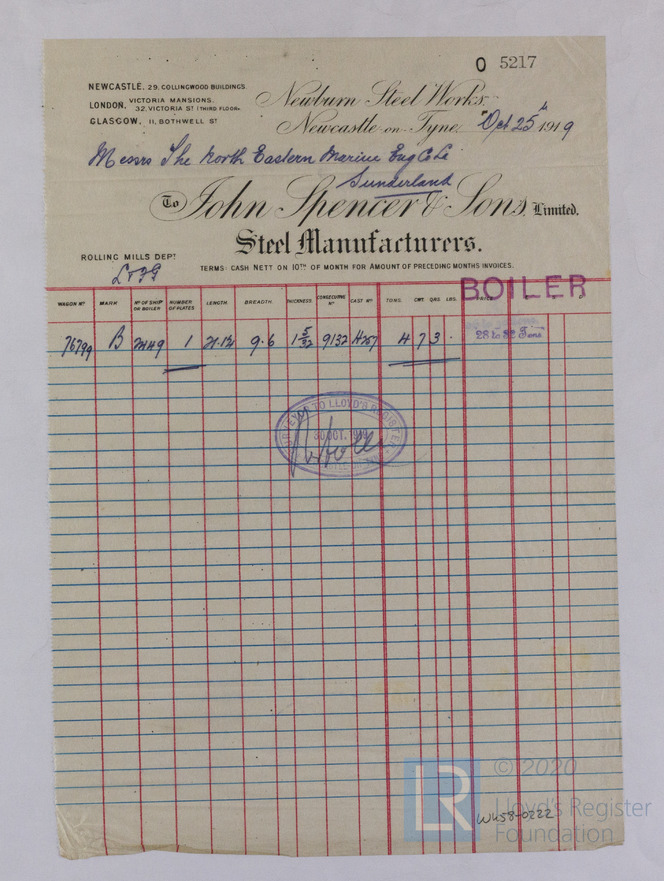 O 5217
NEWCASTLE, 29, COLLINGWOOD BUILDINGS.
LONDON, VICTORIA MANSIONS, 32, VICTORIA ST (THIRD FLOOR)
GLASGOW, 11, BOTHWELL ST
Newburn Steel Works,
Newcastle-on-Tyne, Oct 25th 1919
Messrs The North Eastern Marine Eng Co Ld
Sunderland
To John Spencer & Sons, Limited.
Steel Manufacturers.
ROLLING MILLS DEPT
TERMS: CASH NETT ON 10TH OF MONTH FOR AMOUNT OF PRECEDING MONTHS INVOICES.
BOILER
WAGON No MARK No OF SHIP OR BOILER NUMBER OF PLATES LENGTH. BREADTH. THICKNESS. CONSECUTIVE No CAST No TONS. CWT. QRS. LBS. PRICE
76799 B 2449 1 9.6 1 5/32 9132 4257 4 7 3 .
28 to 32 Tons
SURVEYOR TO LLOYD'S REGISTER
30 OCT. 1919
LR
© 2020
Lloyd's Register
Foundation
W458-0222